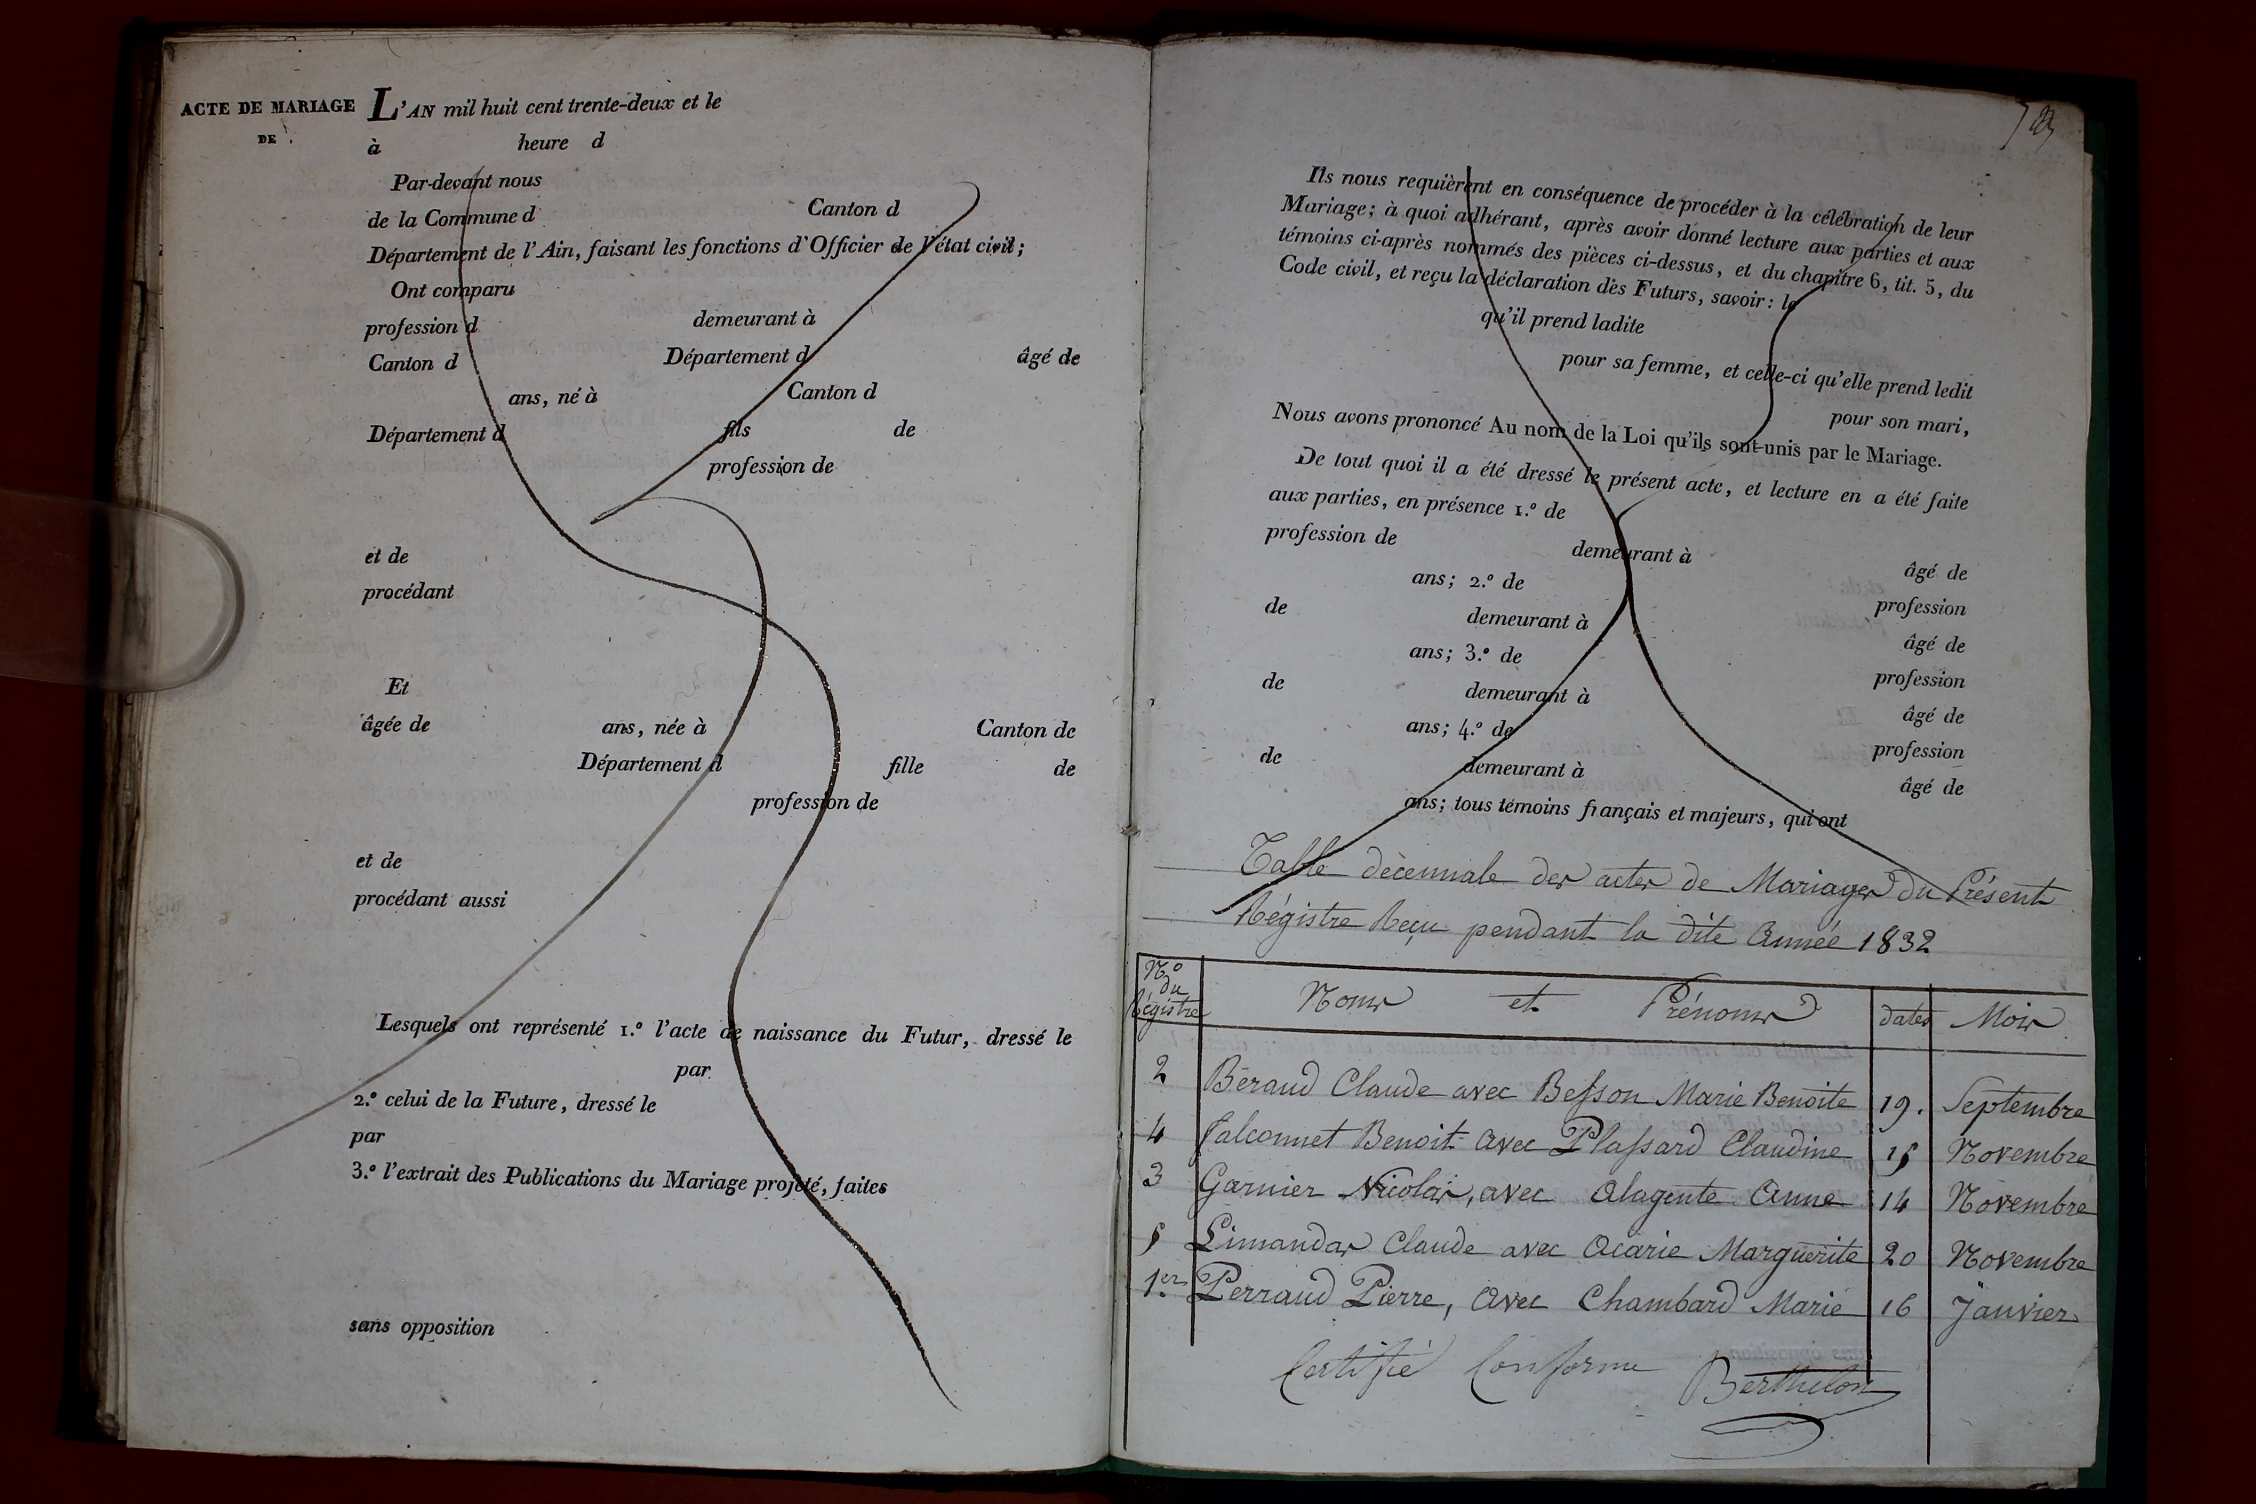 ACTE DE MARIAGE
DE
L'AN mil huit cent trente-deux et le
à heure d
Par-devant nous
de la Commune d Canton d
Département de l'Ain, faisant les fonctions d'Officier de l'état civil;
Ont comparu
profession d demeurant à
Canton d Département d âgé de
ans, né à Canton d
Département d fils de
profession de
et de
procédant
Et
âgée de ans, née à Canton de
Département d fille de
profession de
et de
procédant aussi
Lesquels ont représenté 1.º l'acte de naissance du Futur, dressé le
par
2.º celui de la Future, dressé le
par
3.º l'extrait des Publications du Mariage projeté, faites
sans opposition
Ils nous requièrent en conséquence de procéder à la célébration de leur
Mariage; à quoi adhérant, après avoir donné lecture aux parties et aux
témoins ci-après nommés des pièces ci-dessus, et du chapitre 6, tit. 5, du
Code civil, et reçu la déclaration des Futurs, savoir: le
qu'il prend ladite
pour sa femme, et celle-ci qu'elle prend ledit
pour son mari,
Nous avons prononcé Au nom de la Loi qu'ils sont unis par le Mariage.
De tout quoi il a été dressé le présent acte, et lecture en a été faite
aux parties, en présence 1.º de
profession de demeurant à âgé de
ans; 2.º de profession
de demeurant à âgé de
ans; 3.º de profession
de demeurant à âgé de
ans; 4.º de profession
de demeurant à âgé de
ans; tous témoins français et majeurs, qui ont
Table décennale des actes de Mariages du Présent
Régistre Reçu pendant la dite Année 1832
Nº du Régistre Noms et Prénoms dates Mois
2 Béraud Claude avec Besson Marie Benoite 19. Septembre
4 Falconnet Benoit avec Plassard Claudine 15 Novembre
3 Garnier Nicolas, avec Alagente Anne 14 Novembre
5 Limandas Claude avec Acarie Marguerite 20 Novembre
1er Perraud Pierre, avec Chambard Marie 16 Janvier
Certifié Conforme Berthelon